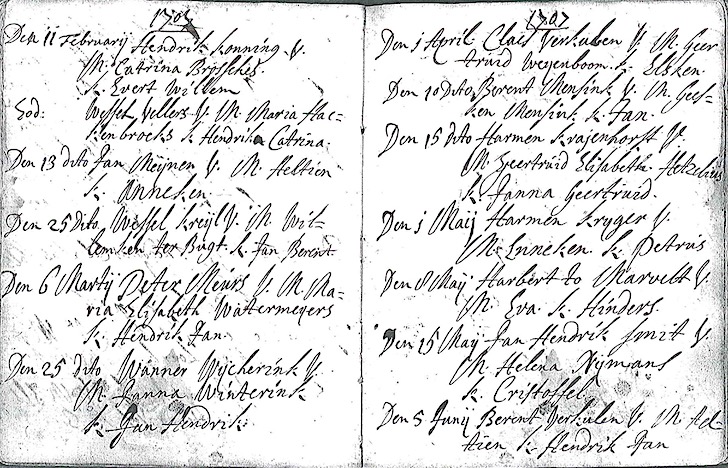 1707
Den 11 Februarij Hendrik Konning V.
M. Catrina Brossches.
K. Evert Willem
Eod: Wessel Vellers V. M. Maria Hac-
kenbroeks K. Hendrika Catrina.
Den 13 dito Jan Meijnen V. M. Aeltien
K. Anneken.
Den 25 dito Wessel Kreijl V. M. Wil-
lemken ter Bugt. K. Jan Berent.
Den 6 Martij Peter Meurs V. M. Ma-
ria Elisabeth Watermeyers
K. Hendrik Jan.
Den 25 dito Wanner Wycherink V.
M. Janna Winterink
K. Jan Hendrik.
1707
Den 1 April Claes Verkulen V. M. Geer
truid Wegenboom. K. Elsken.
Den 10 dito Berent Mensink V. M. Gees-
ken Mensink K. Jan.
Den 15 dito Harmen Krajenhorst V.
M. Geertruid Elisabeth Hetzelius
K. Janna Geertruid.
Den 1 Maij Harmen Kryger V.
M. Enneken. K. Petrus
Den 8 Maij Harbert to Marvelt V.
M. Eva. K. Hinders.
Den 15 Maij Jan Hendrik Smit V.
M. Helena Nymans
K. Cristoffel.
Den 5 Junij Berent Verkulen V. M. Ael-
tien K. Hendrik Jan